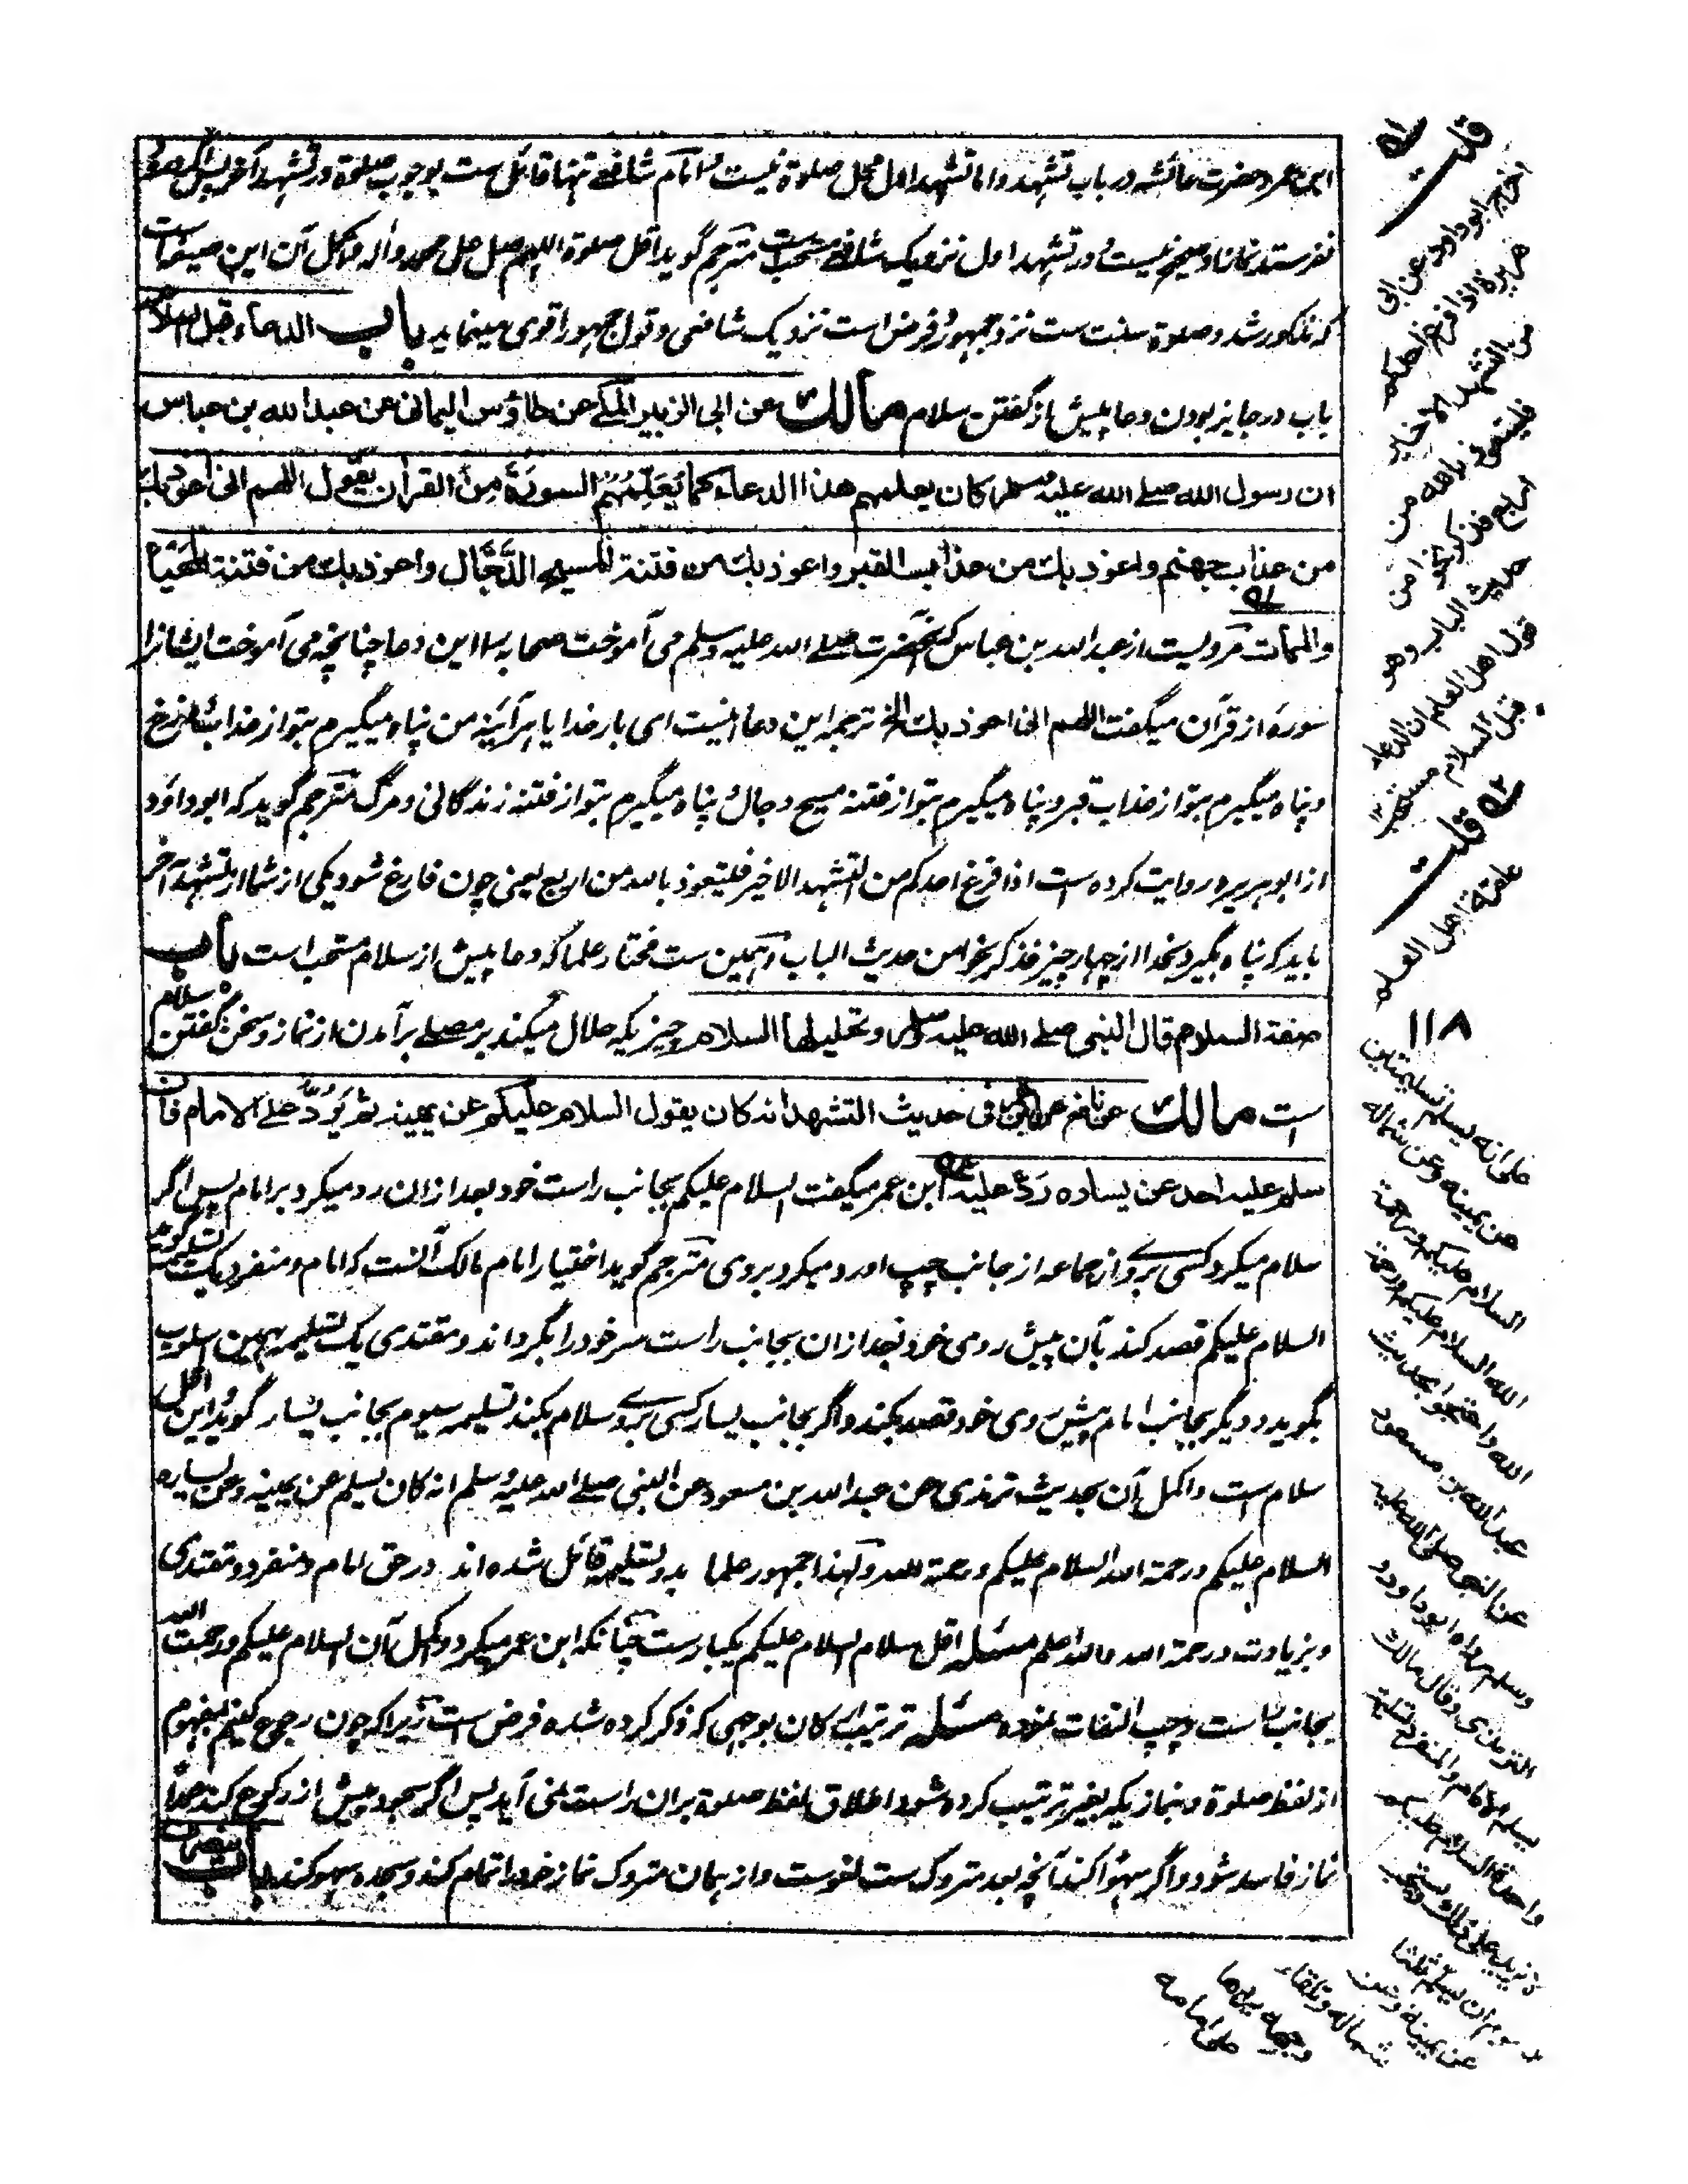 ابن عمر و حضرت عائشه در باب تشهد و اما تشهد اول محل صلوة نیست و امام شافعی تنها قائل ست بوجوب صلوة در تشهد آخر پس اگر صلوة
نفرستد نماز او صحیح نیست و در تشهد اول نزدیک شافعی مستحب ست مترجم گوید اقل صلوة اللهم صل علی محمد وآله واکمل آن این صیغها ست
که مذکور شد وصلوة سنت ست نزد جمهور و فرض است نزدیک شافعی وقول جمهور اقوی مینماید باب الدعاء قبل السلام
باب در جایز بودن دعا پیش از گفتن سلام مالك عن ابی الزبیر المکی عن طاؤس الیمانی عن عبد الله بن عباس
ان رسول الله صلے الله علیه وسلم کان یعلمهم هذا الدعاء کما یُعَلِّمُهُمُ السورَةَ مِنَ القرآن یقول اللهم انی اعوذ بك
من عذاب جهنم واعوذ بك من عذاب القبر واعوذ بك من فتنة المسیح الدَّجَّال واعوذ بك من فتنة المَحْیَا
والممات مرویست از عبد الله بن عباس که آنحضرت صلے الله علیه وسلم می آموخت صحابه را این دعا چنانچه می آموخت ایشانرا
سوره از قرآن میگفت اللهم انی اعوذ بك الخ ترجمه این دعا اینست ای بار خدایا هرآئینه من پناه میگیرم بتو از عذاب دوزخ
و پناه میگیرم بتو از عذاب قبر و پناه میگیرم بتو از فتنه مسیح دجال و پناه میگیرم بتو از فتنه زندگانی و مرگ مترجم گوید که ابو داؤد
از ابو هریره روایت کرده است اذا فرغ احدکم من التشهد الاخیر فلیتعوذ بالله من اربع یعنی چون فارغ شود یکی از شما از تشهد آخر
باید که پناه بگیرد بخدا از چهار چیز فذکر نحوا من حدیث الباب وهمین ست مختار علما که دعا پیش از سلام مستحب است باب
صفة السلام قال النبی صلے الله علیه وسلم وتحلیلها السلام چیزیکه حلال میکند بر مصلے برآمدن از نماز و سخن گفتن سلام
است مالك عن نافع عن ابن عمر فی حدیث التشهد انه کان یقول السلام علیکم عن یمینه ثم یَرُدُّ علے الامام فان
سلم علیه احد عن یساره رَدَّ علیه ابن عمر میگفت السلام علیکم بجانب راست خود بعد ازان رد میکرد بر امام پس اگر
سلام میکرد کسی برو از جماعه از جانب چپ او رد میکرد بروی مترجم گوید اختیار امام مالک آنست که امام و منفرد یک تسلیمه گوید
السلام علیکم قصد کند بآن پیش روی خود و بعد ازان بجانب راست سر خود را بگرداند و مقتدی یک تسلیمه بهمین اسلوب
بگوید و دیگر بجانب امام پیش روی خود قصد بکند واگر بجانب یسار کسی برو سلام بکند تسلیمه سیوم بجانب یسار گوید و این اقل
سلام است واکمل آن بحدیث ترمذی عن عبد الله بن مسعود عن النبی صلے الله علیه وسلم انه کان یسلم عن یمینه وعن یساره
السلام علیکم ورحمة الله السلام علیکم ورحمة الله ولهذا جمهور علما بدو تسلیمه قائل شده اند در حق امام و منفرد و مقتدی
وبزیادت ورحمة الله والله اعلم مسئله اقل سلام السلام علیکم یکبار ست چنانکه ابن عمر میکرد واکمل آن السلام علیکم ورحمت الله
بجانب راست وچپ التفات نموده مسئله ترتیب ارکان بوجهی که ذکر کرده شده فرض است زیرا که چون رجوع کنیم بمفهوم
از لفظ صلوة و نماز یکه بغیر ترتیب کرده شود اطلاق لفظ صلوة بران راست نمی آید پس اگر سجود پیش از رکوع کند عمدًا
نماز فاسد شود واگر سهوًا کند آنچه بعد متروک ست لغوست واز همان متروک نماز خود را تمام کند وسجده سهو کند باب
قلت
اخرج ابو داود عن ابی
هریرة اذا فرغ احدکم
من التشهد الاخیر
فلیتعوذ بالله من
اربع فذکر نحوا من
حدیث الباب وهو
قول اهل العلم ان الدعاء
قبل السلام مستحب
قلت
عامة اهل العلم
۱۱۸
علی انه یسلم تسلیمتین
عن یمینه وعن شماله
السلام علیکم ورحمة
الله السلام علیکم ورحمة
الله واحتجوا بحدیث
عبد الله بن مسعود
عن النبی صلی الله علیه
وسلم رواه ابو داود
الترمذی وقال مالك
یسلم الامام والمنفرد تسلیمة
واحدة السلام علیکم
لا یزید علی ذلك ویستحب
للماموم ان یسلم ثلثا
عن یمینه وعن
شماله وتلقاء
وجهه یردها
علی امامه